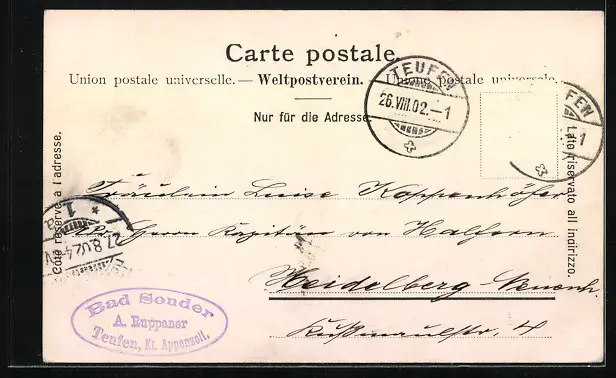 Carte postale.
Union postale universelle. — Weltpostverein. — Unione postale universale.
Nur für die Adresse.
TEUFEN
26.VIII.02.–1
FEN
1
Côté réservé à l'adresse.
Lato riservato all indirizzo.
Fräulein Luise Koppenhöfer
Herrn Kapitän von Halfern
Heidelberg-Neuenh.
Kußmaulstr. 4
27.8.02.4
1a
Bad Sonder
A. Ruppaner
Teufen, Kt. Appenzell.